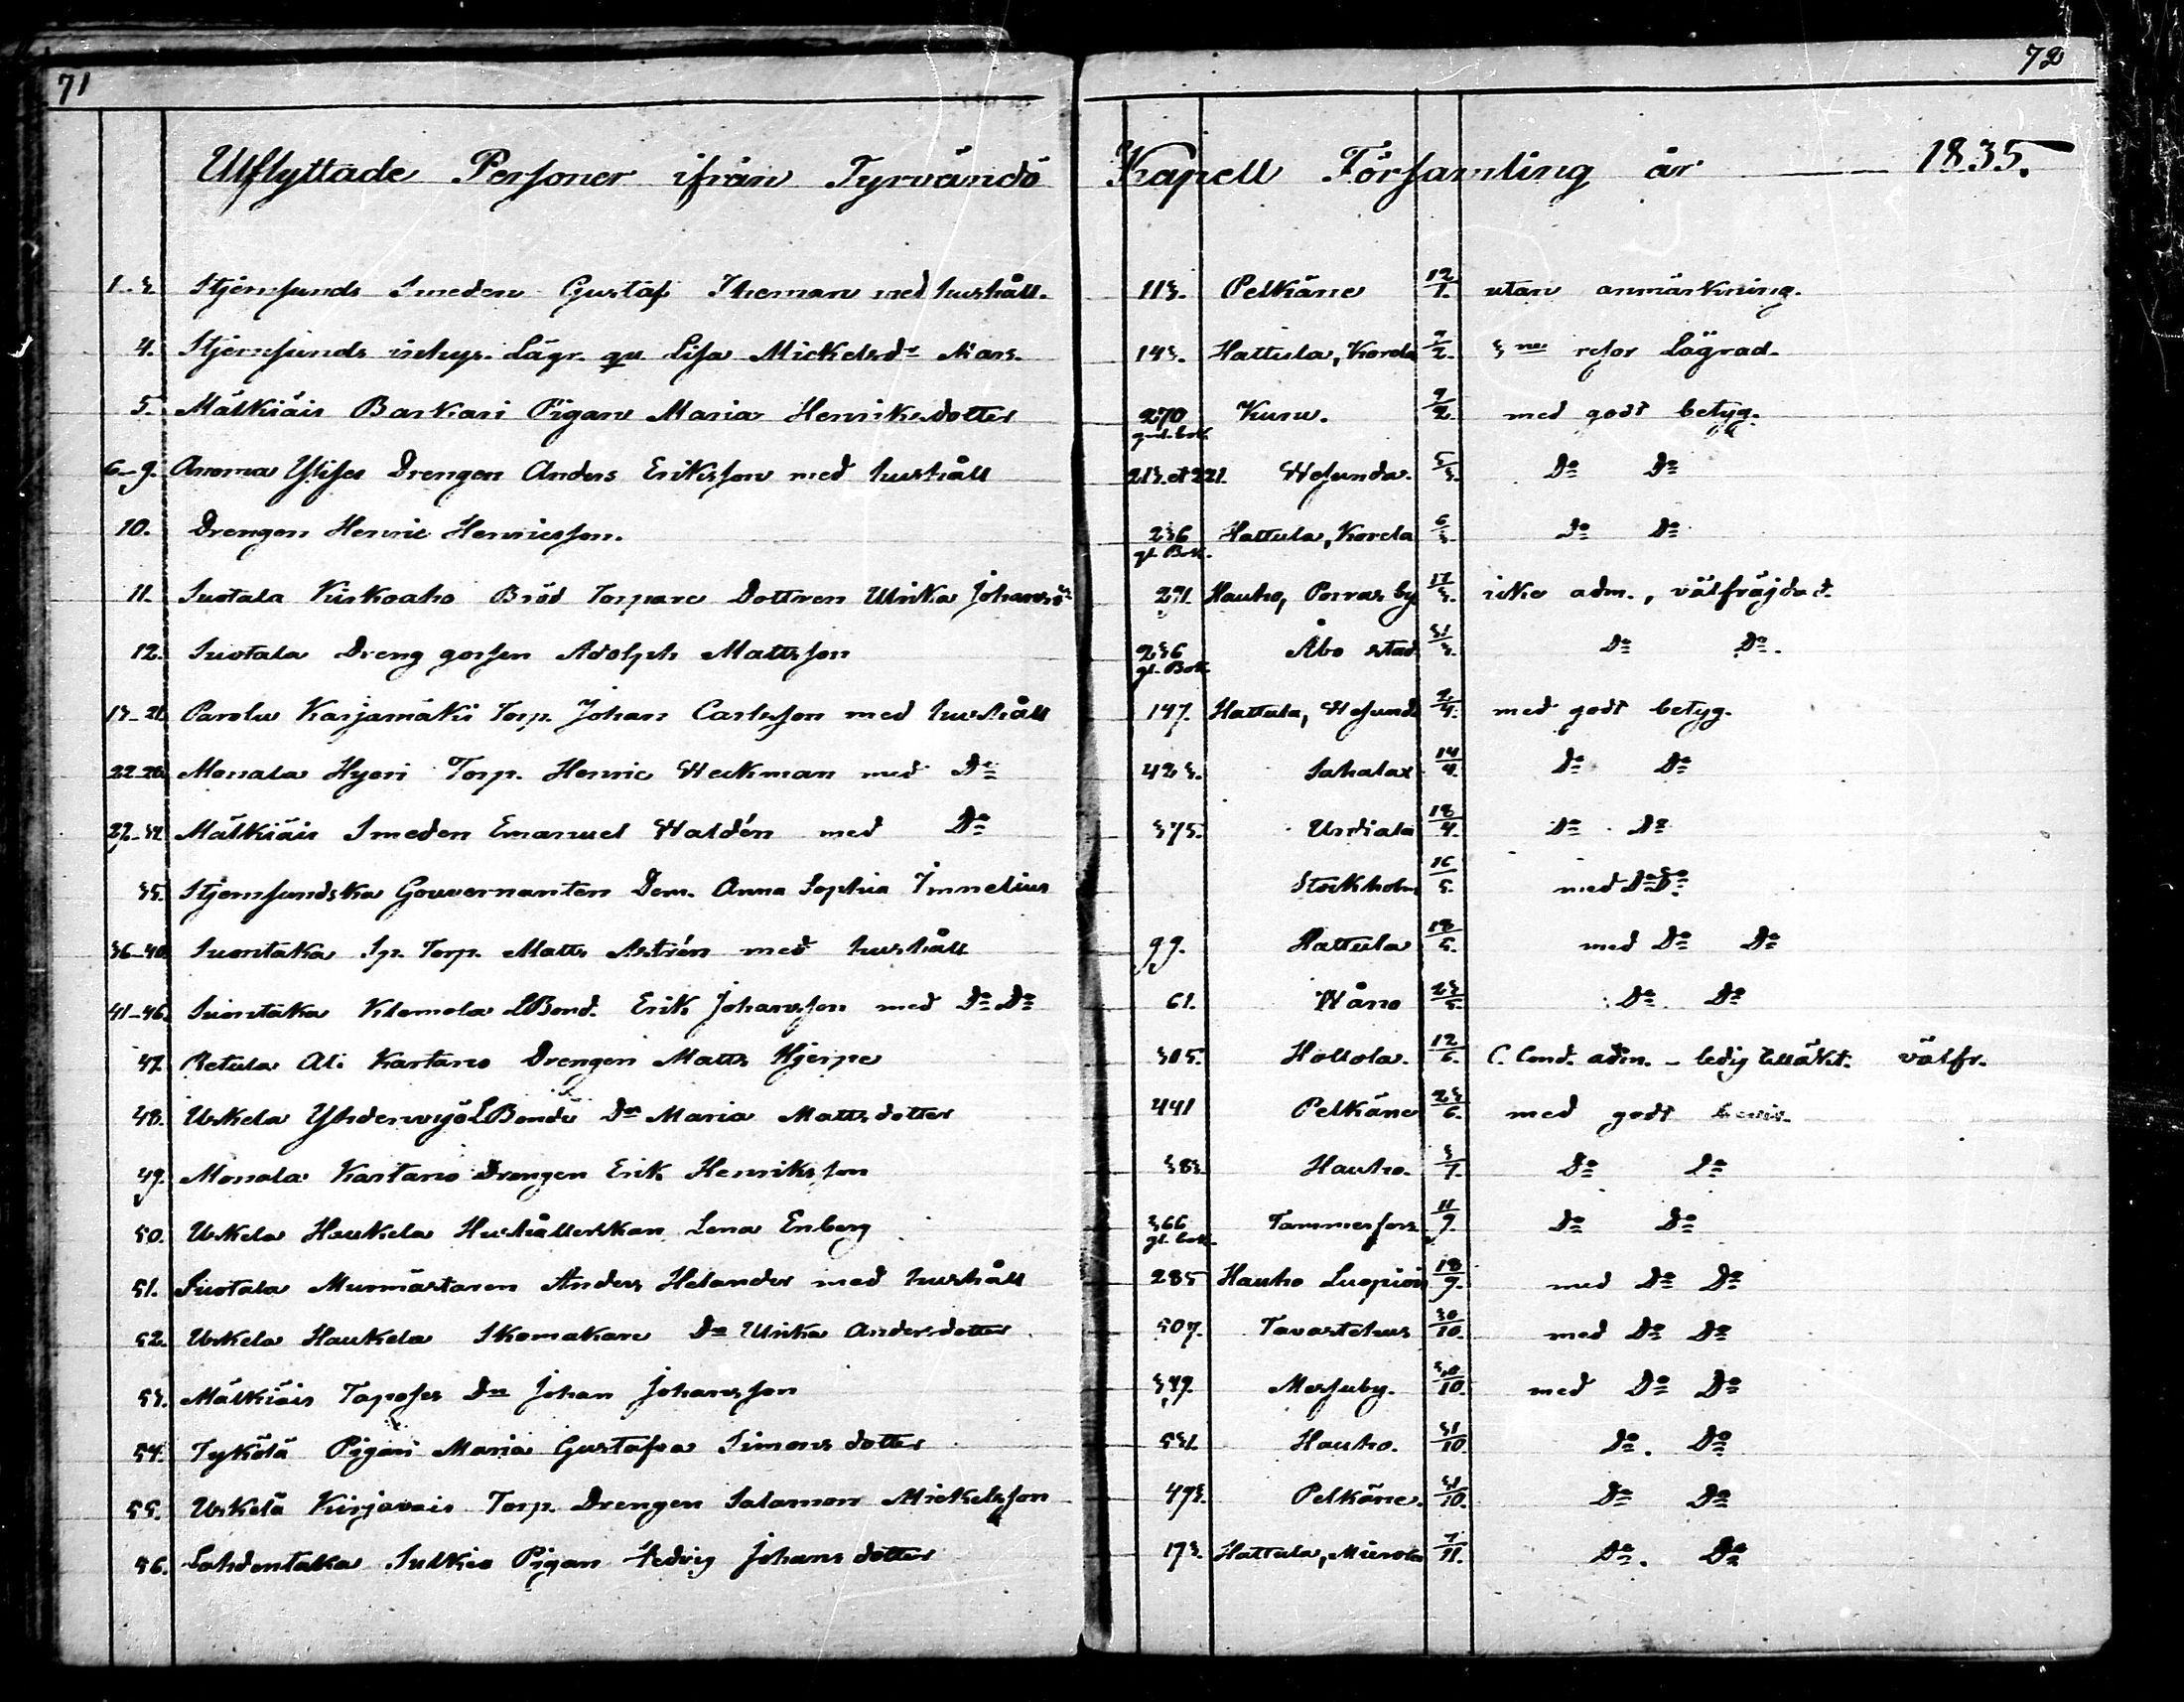 71 72
Utflyttade Personer ifrån Tyrvändö Kapell Församling år 1835.
1-3. Stjernsunds Smeden Gustaf Theman med hushåll. 113. Pelkäne 12/1. utan anmärkning.
4. Stjernsunds inhys. Lägr. qu Lisa Mickelsdr 143. Hattula, Korda 9/2. 3ne resor Lägrad.
5. Mälkiäis Barkari Pigan Maria Henriksdotter 270 Kuru. 9/2. med godt betyg.
6-9. Anoma Ylisse Drengen Anders Eriksson med hushåll 213. et 221. Wesunda. 5/3. Do Do
10. Drengen Henric Henricsson. 236 gl. Bok. Hattula, Korda 6/3. Do Do
11. Suotala Kiskoaho Bröd Torpare Dottren Ulrika Johansdr 291. Hauho, Porras by 17/3. icke adm., välfräjdad.
12. Suotala Dreng gossen Adolph Mattsson 236 gl. Bok. Åbo stad 31/3. Do Do.
13-21. Parola Karjamäki Torp. Johan Carlsson med hushåll 147. Hattula, Wesunda 2/4. med godt betyg.
22-26. Monala Hyori Torp. Henric Weckman med Do 423. Sahalax 14/4. Do Do
27-34. Mälkiäis Smeden Emanuel Waldén med Do 375. Urdiala 18/4. Do Do
35. Stjernsundska Gouvernanten Dem. Anna Sophia Imnelius Stockholm 16/5. med Do Do.
36-40. Suontaka Sp. Torp. Matts Astrén med hushåll 99. Hattula 18/5. med Do Do
41-46. Suontaka Klemola LBond. Erik Johansson med Do Do 61. Wåno 23/5. Do Do
47. Retula Ali Kartano Drengen Matts Hjerpe 305. Hollola. 12/6. C. Cond. adm. - ledig till äkt. välfr.
48. Uskela LBonde Dr Maria Mattsdotter 441 Pelkäne 23/6. med godt bevis.
49. Monala Kartano Drengen Erik Henriksson 383. Hauho. 3/7. Do Do
50. Uskela Haukela Hushållerskan Lena Enberg 366 gl. bok. Tammerfors 11/9. Do Do
51. Suotala Murmästaren Anders Helander med hushåll 285 Hauho Luopiois 18/9. med Do Do
52. Uskela Haukela Skomakare Dr Ulrika Andersdotter 507. Tavastehus 30/10. med Do Do
53. Mälkiäis Taposse Dr Johan Johansson 349. Messuby. 30/10. med Do Do
54. Tykölä Pigan Maria Gustafva Simonsdotter 531. Hauho. 31/10. Do. Do
55. Uskela Kirjavais Torp. Drengen Salamon Mickelsson 493. Pelkäne. 31/10. Do Do
56. Lahdentaka Sulkio Pigan Hedvig Johansdotter 173. Hattula, Mierola 7/11. Do. Do